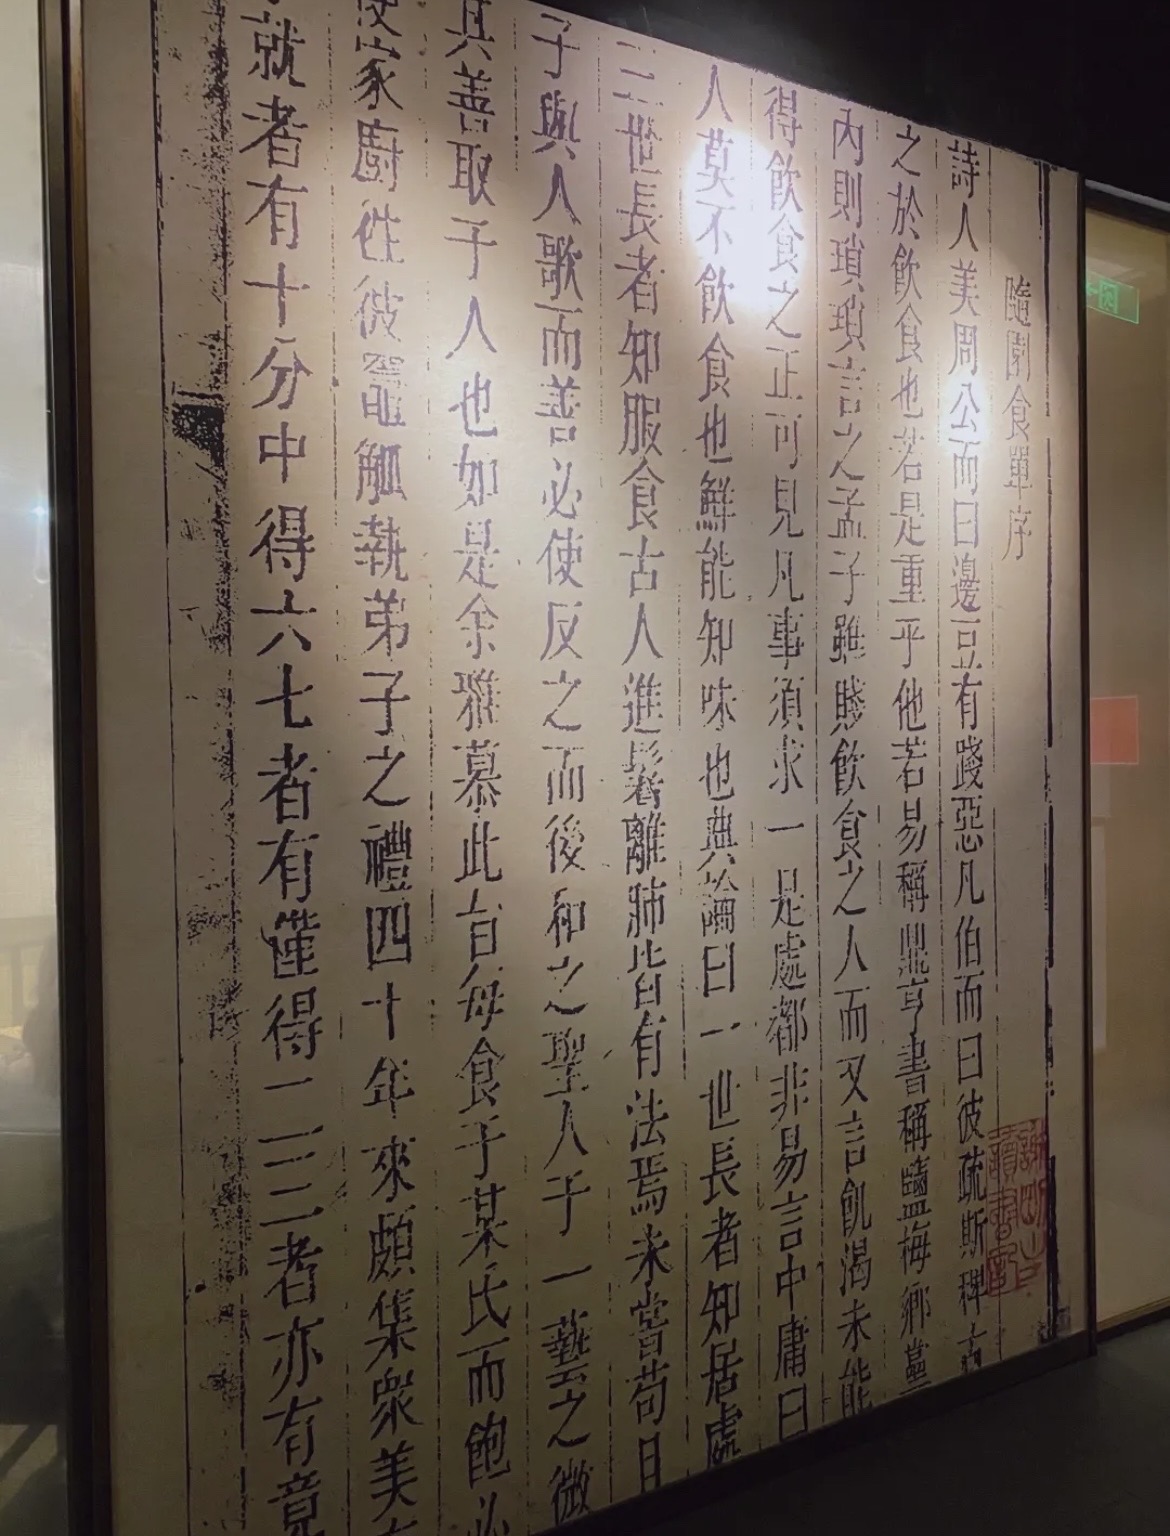 隨園食單序
詩人美周公而曰籩豆有踐惡凡伯而曰彼疏斯稗古
之於飲食也若是重乎他若易稱鼎亨書稱鹽梅鄉黨
內則瑣瑣言之孟子雖賤飲食之人而又言飢渴未能
得飲食之正可見凡事須求一是處都非易言中庸曰
人莫不飲食也鮮能知味也典論曰一世長者知居處
三世長者知服食古人進鬐離肺皆有法焉未嘗苟且
子與人歌而善必使反之而後和之聖人于一藝之微
其善取于人也如是余雅慕此旨每食于某氏而飽必
使家廚往彼竈觚執弟子之禮四十年來頗集衆美有
就者有十分中得六七者有僅得二三者亦有竟